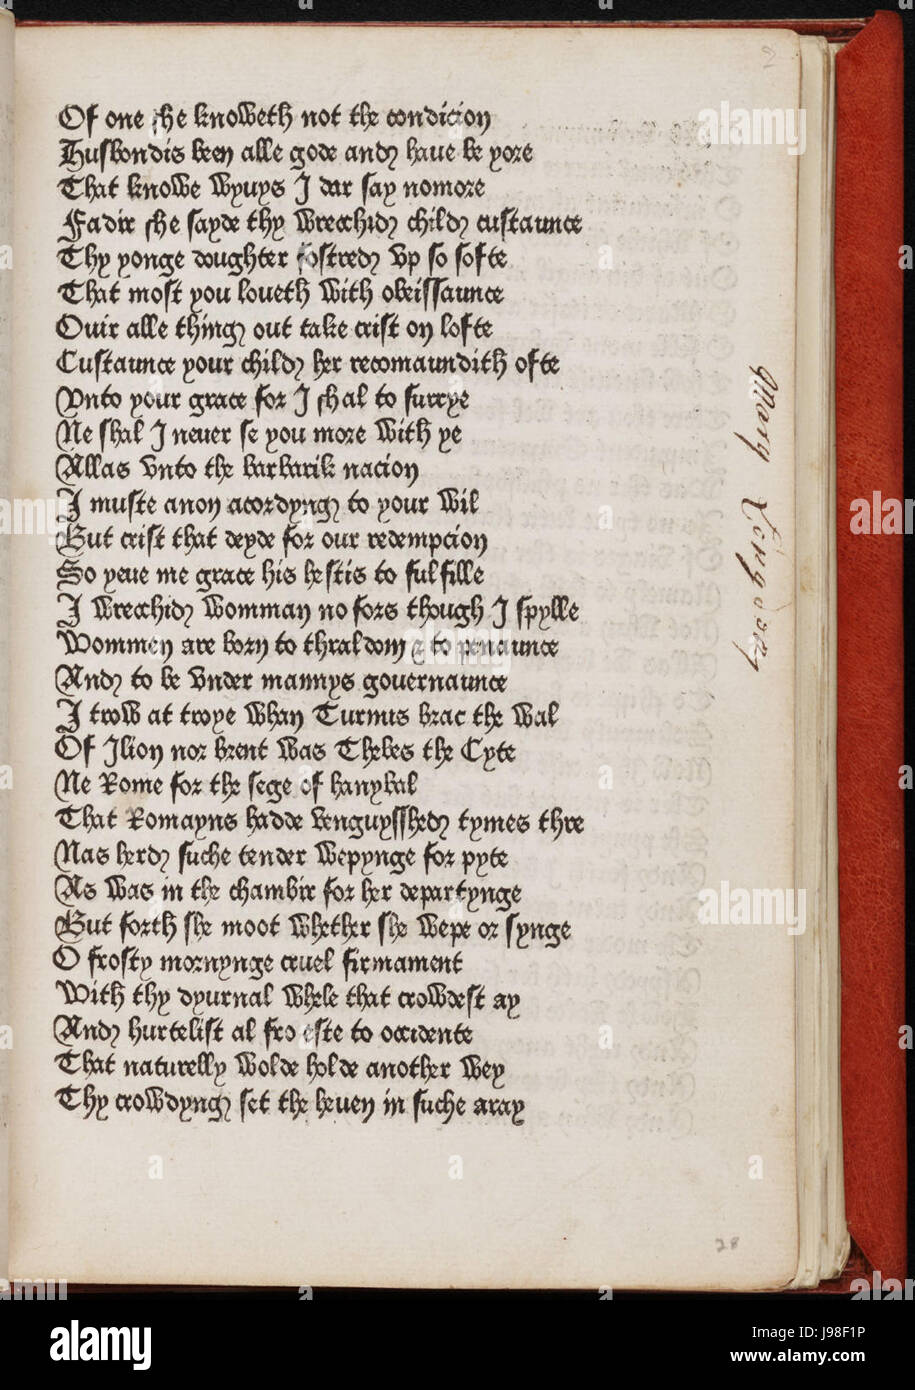 Of one she knoweth not the condicion
Husbondis been alle gode and haue be yore
That knowe wyuys I dar say nomore
Fadir she sayde thy wrecchid child custaunce
Thy yonge doughter fostred vp so softe
That most you loueth with obeissaunce
Ouir alle thing out take crist on lofte
Custaunce your child her recomaundith ofte
Vnto your grace for I shal to surrye
Ne shal I neuer se you more with ye
Allas vnto the barbarik nacion
I muste anon acordyng to your wil
But crist that deyde for our redempcion
So yeue me grace his hestis to fulfille
I wrecchid womman no fors though I spylle
Wommen are born to thraldom & to penaunce
And to be vnder mannys gouernaunce
I trow at troye whan Turmus brac the wal
Of Ilion nor brent was Thebes the Cyte
Ne Rome for the sege of hanybal
That Romayns hadde venguysshed tymes thre
Nas herd suche tender wepynge for pyte
As was in the chambir for her departynge
But forth she moot whether she wepe or synge
O frosty mornynge cruel firmament
With thy dyurnal whele that crowdest ay
And hurtelist al fro este to occidente
That naturelly wolde holde another wey
Thy crowdyng set the heuen in suche aray
Mary
28
alamy
Image ID: J98F1P
www.alamy.com